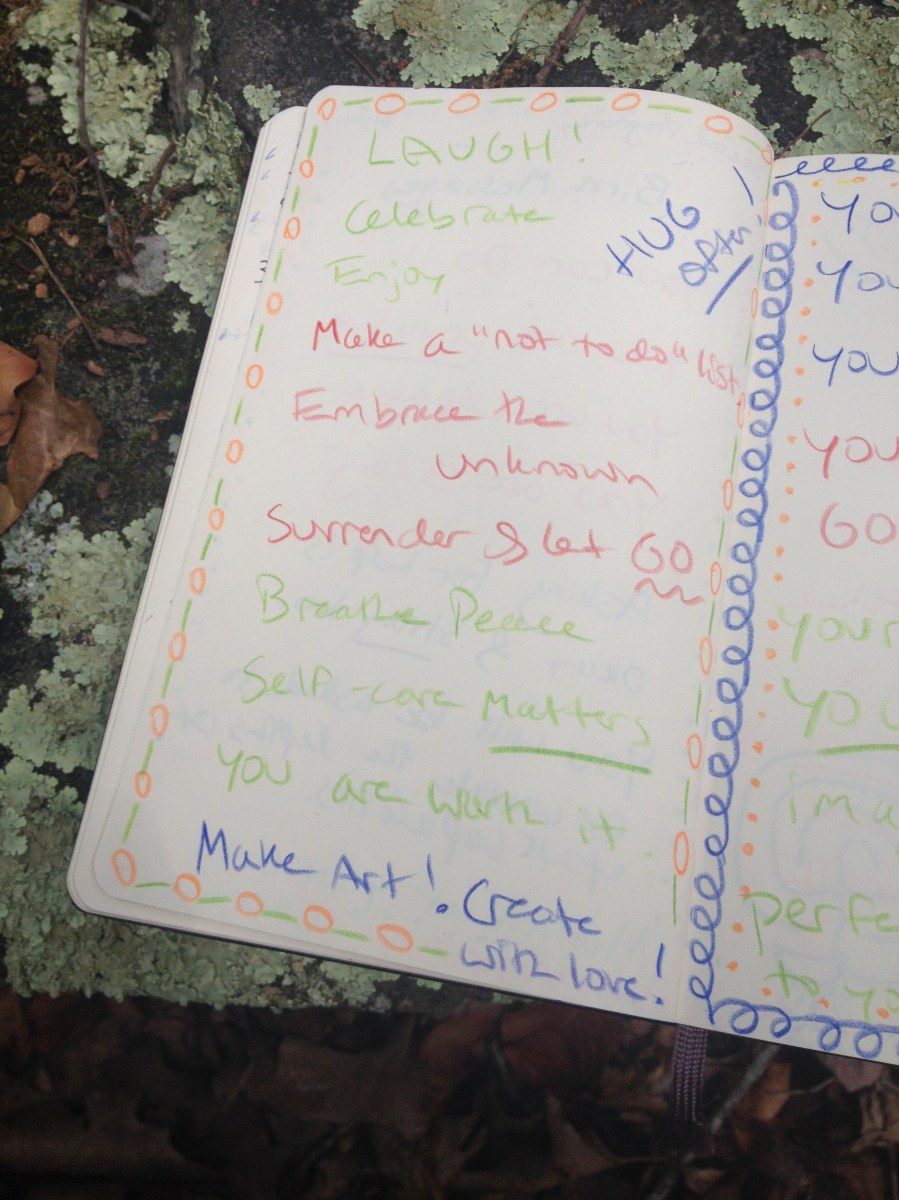 LAUGH!
Celebrate
HUG
often!
Enjoy
Make a "not to do" list
Embrace the
unknown
Surrender & let GO
Breathe Peace
Self-care Matters
You are worth it.
Make Art! Create
with love!
YO
YOU
YOU
YOU
GO
YOUR
YOU
ima
perfe
to yo